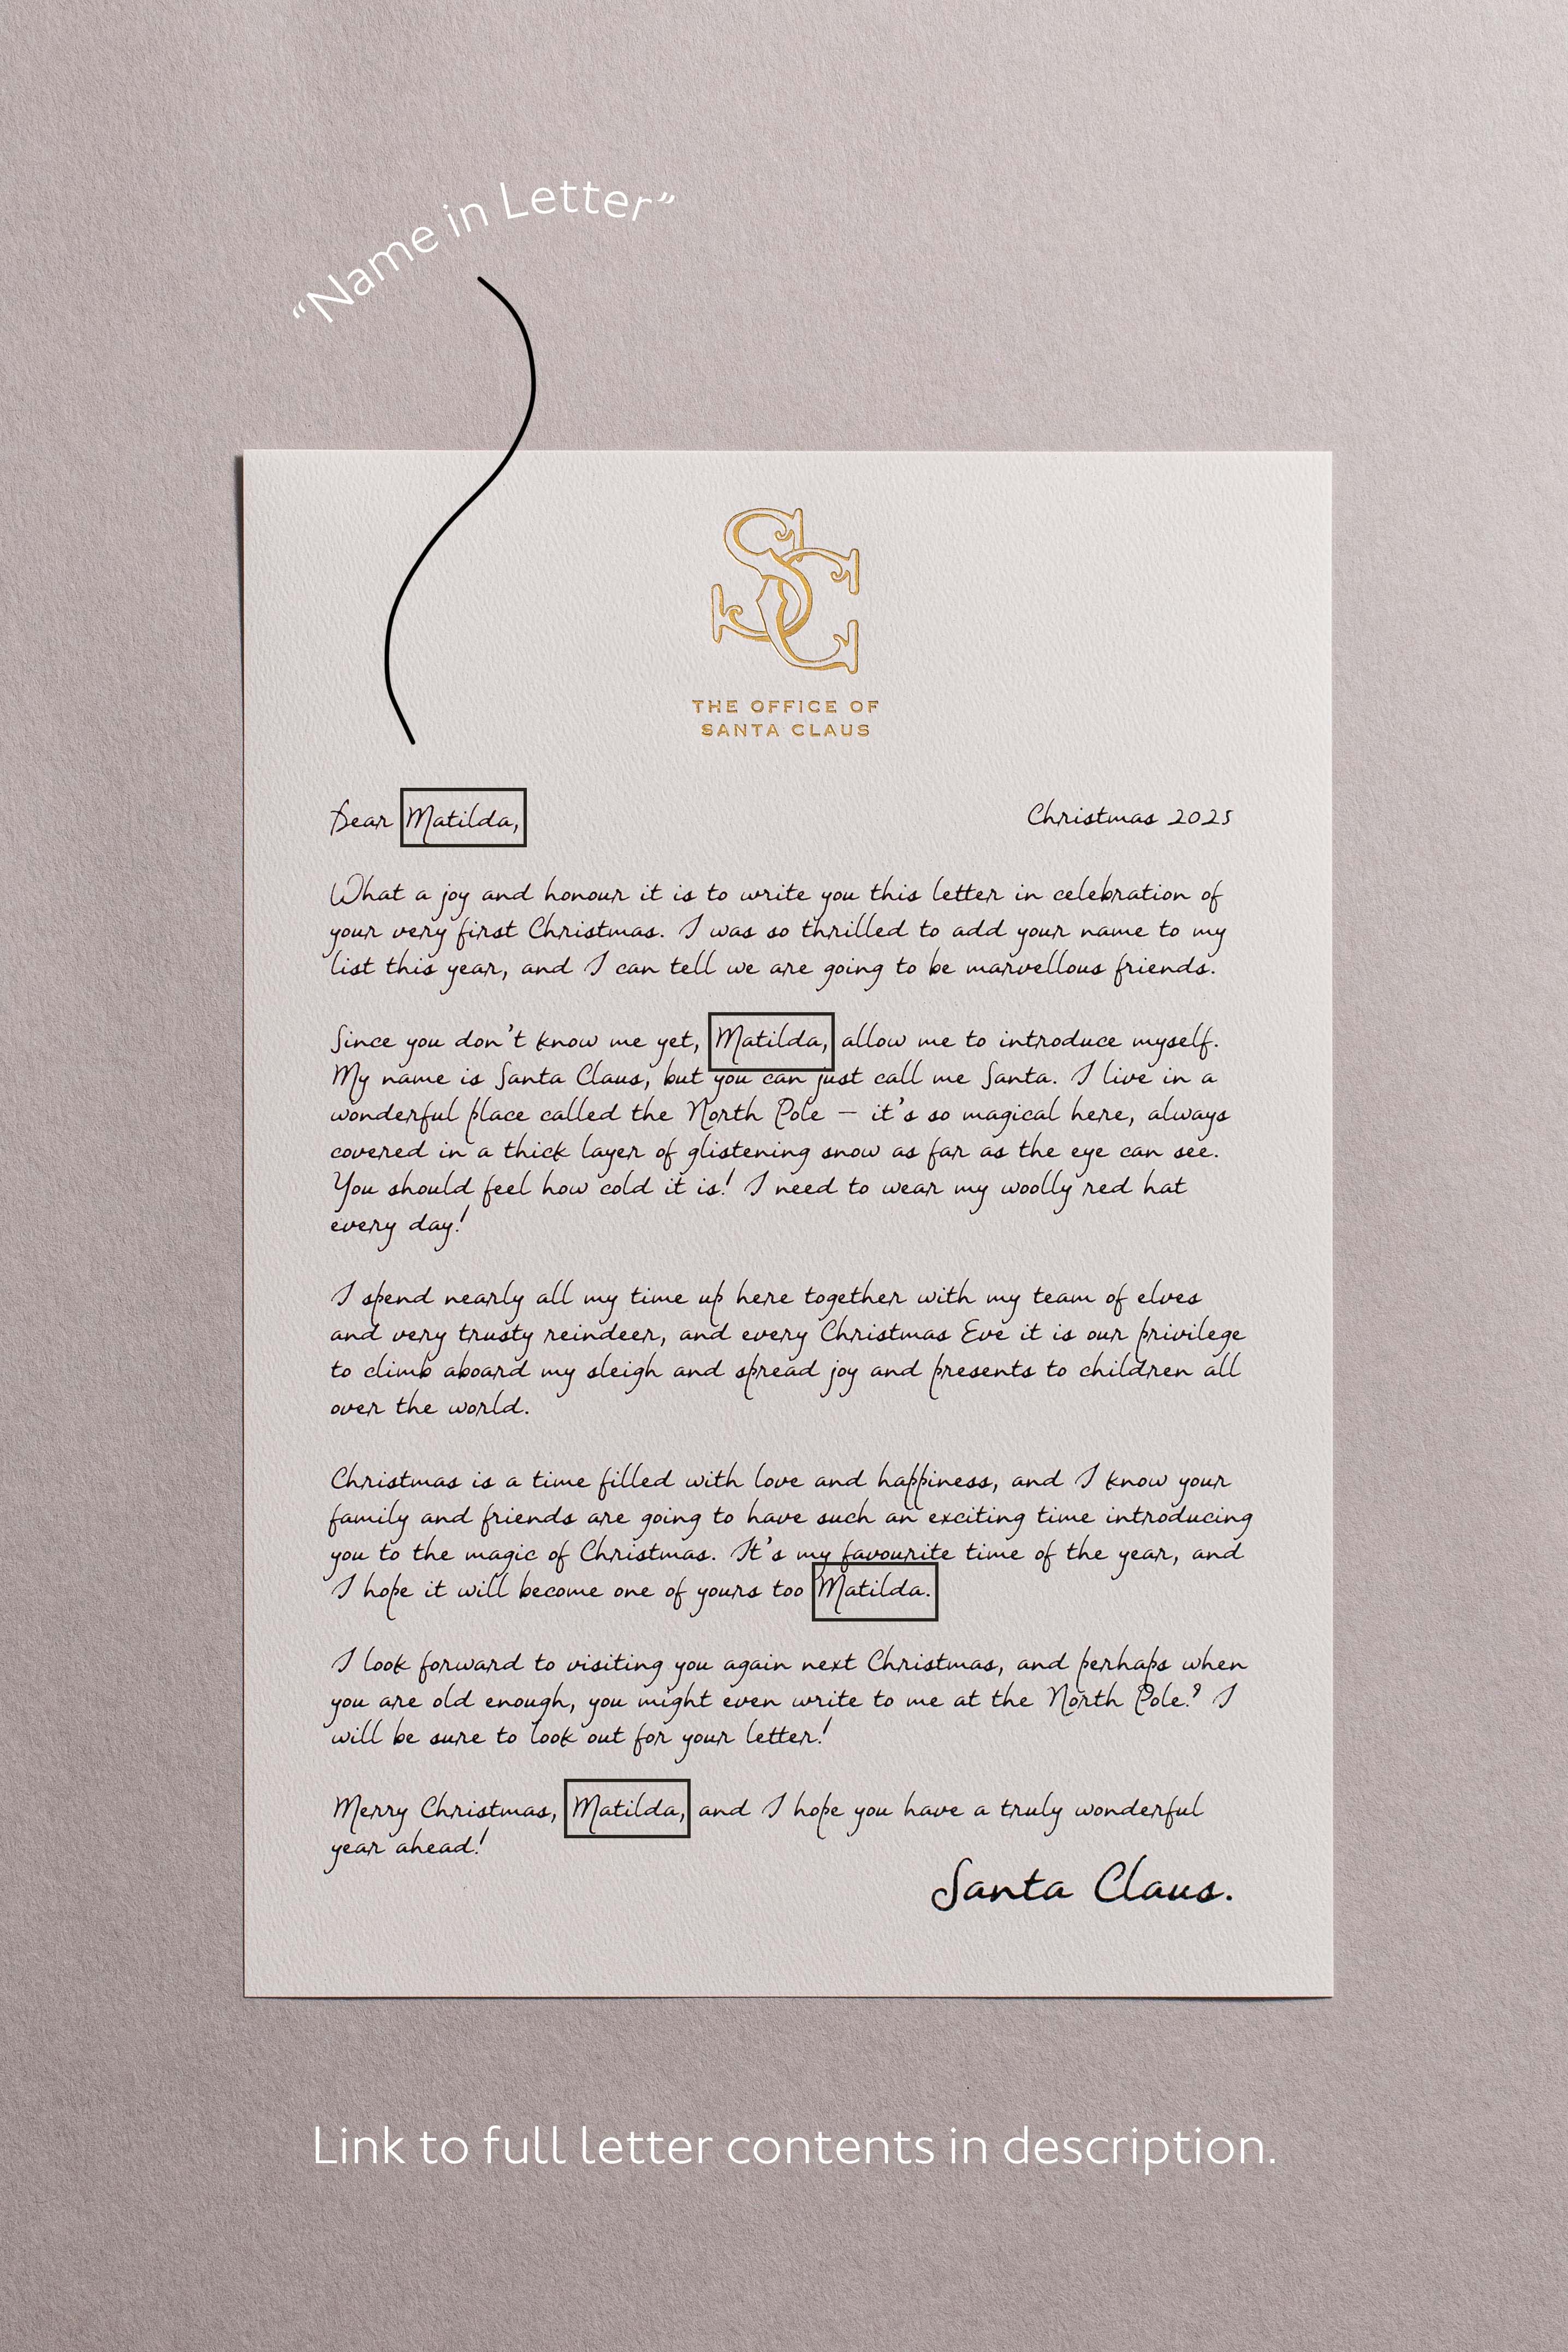 “Name in Letter”
SC
THE OFFICE OF
SANTA CLAUS
Dear Matilda,
Christmas 2025
What a joy and honour it is to write you this letter in celebration of
your very first Christmas. I was so thrilled to add your name to my
list this year, and I can tell we are going to be marvellous friends.
Since you don’t know me yet, Matilda, allow me to introduce myself.
My name is Santa Claus, but you can just call me Santa. I live in a
wonderful place called the North Pole – it’s so magical here, always
covered in a thick layer of glistening snow as far as the eye can see.
You should feel how cold it is! I need to wear my woolly red hat
every day!
I spend nearly all my time up here together with my team of elves
and very trusty reindeer, and every Christmas Eve it is our privilege
to climb aboard my sleigh and spread joy and presents to children all
over the world.
Christmas is a time filled with love and happiness, and I know your
family and friends are going to have such an exciting time introducing
you to the magic of Christmas. It’s my favourite time of the year, and
I hope it will become one of yours too Matilda.
I look forward to visiting you again next Christmas, and perhaps when
you are old enough, you might even write to me at the North Pole? I
will be sure to look out for your letter!
Merry Christmas, Matilda, and I hope you have a truly wonderful
year ahead!
Santa Claus.
Link to full letter contents in description.